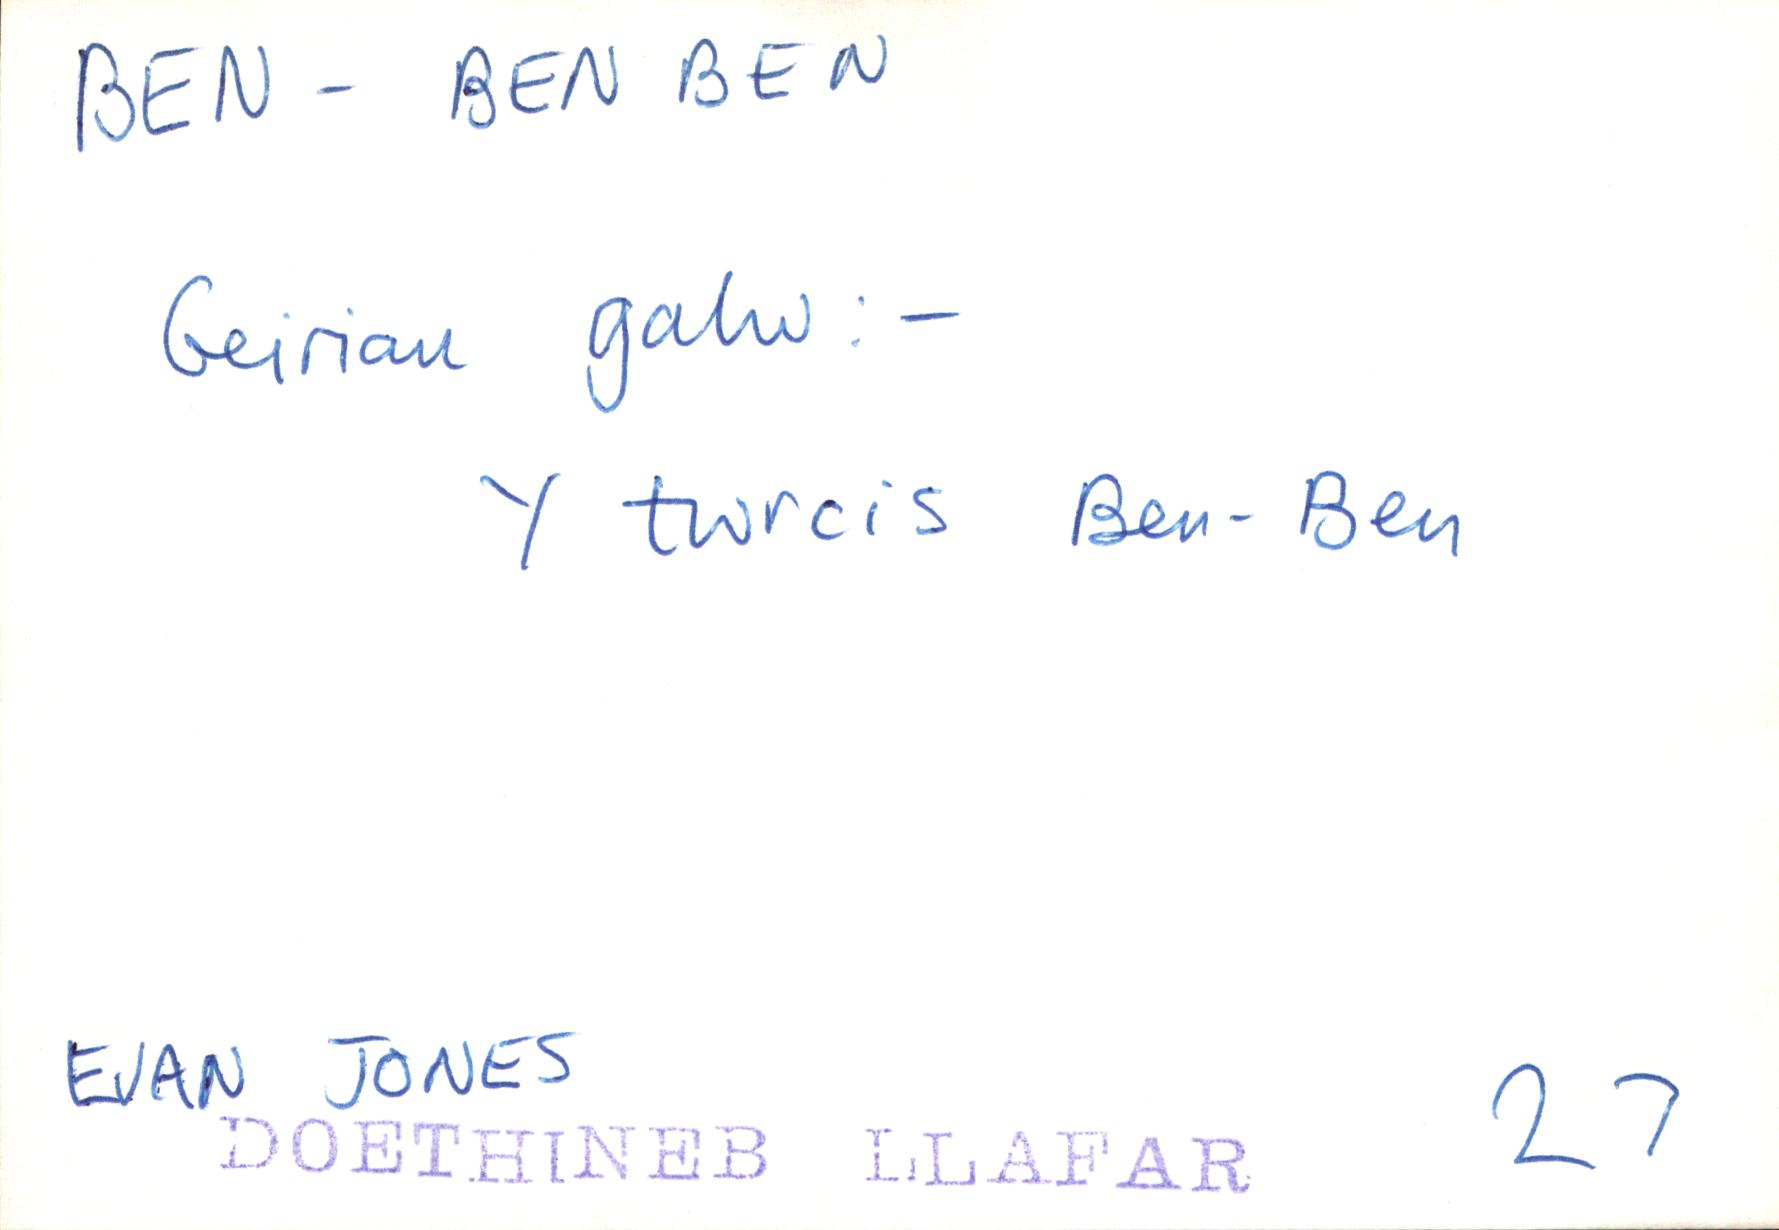 BEN - BEN BEN
Geiriau galw:-
Y twrcis Ben-Ben
EVAN JONES
DOETHINEB LLAFAR
27